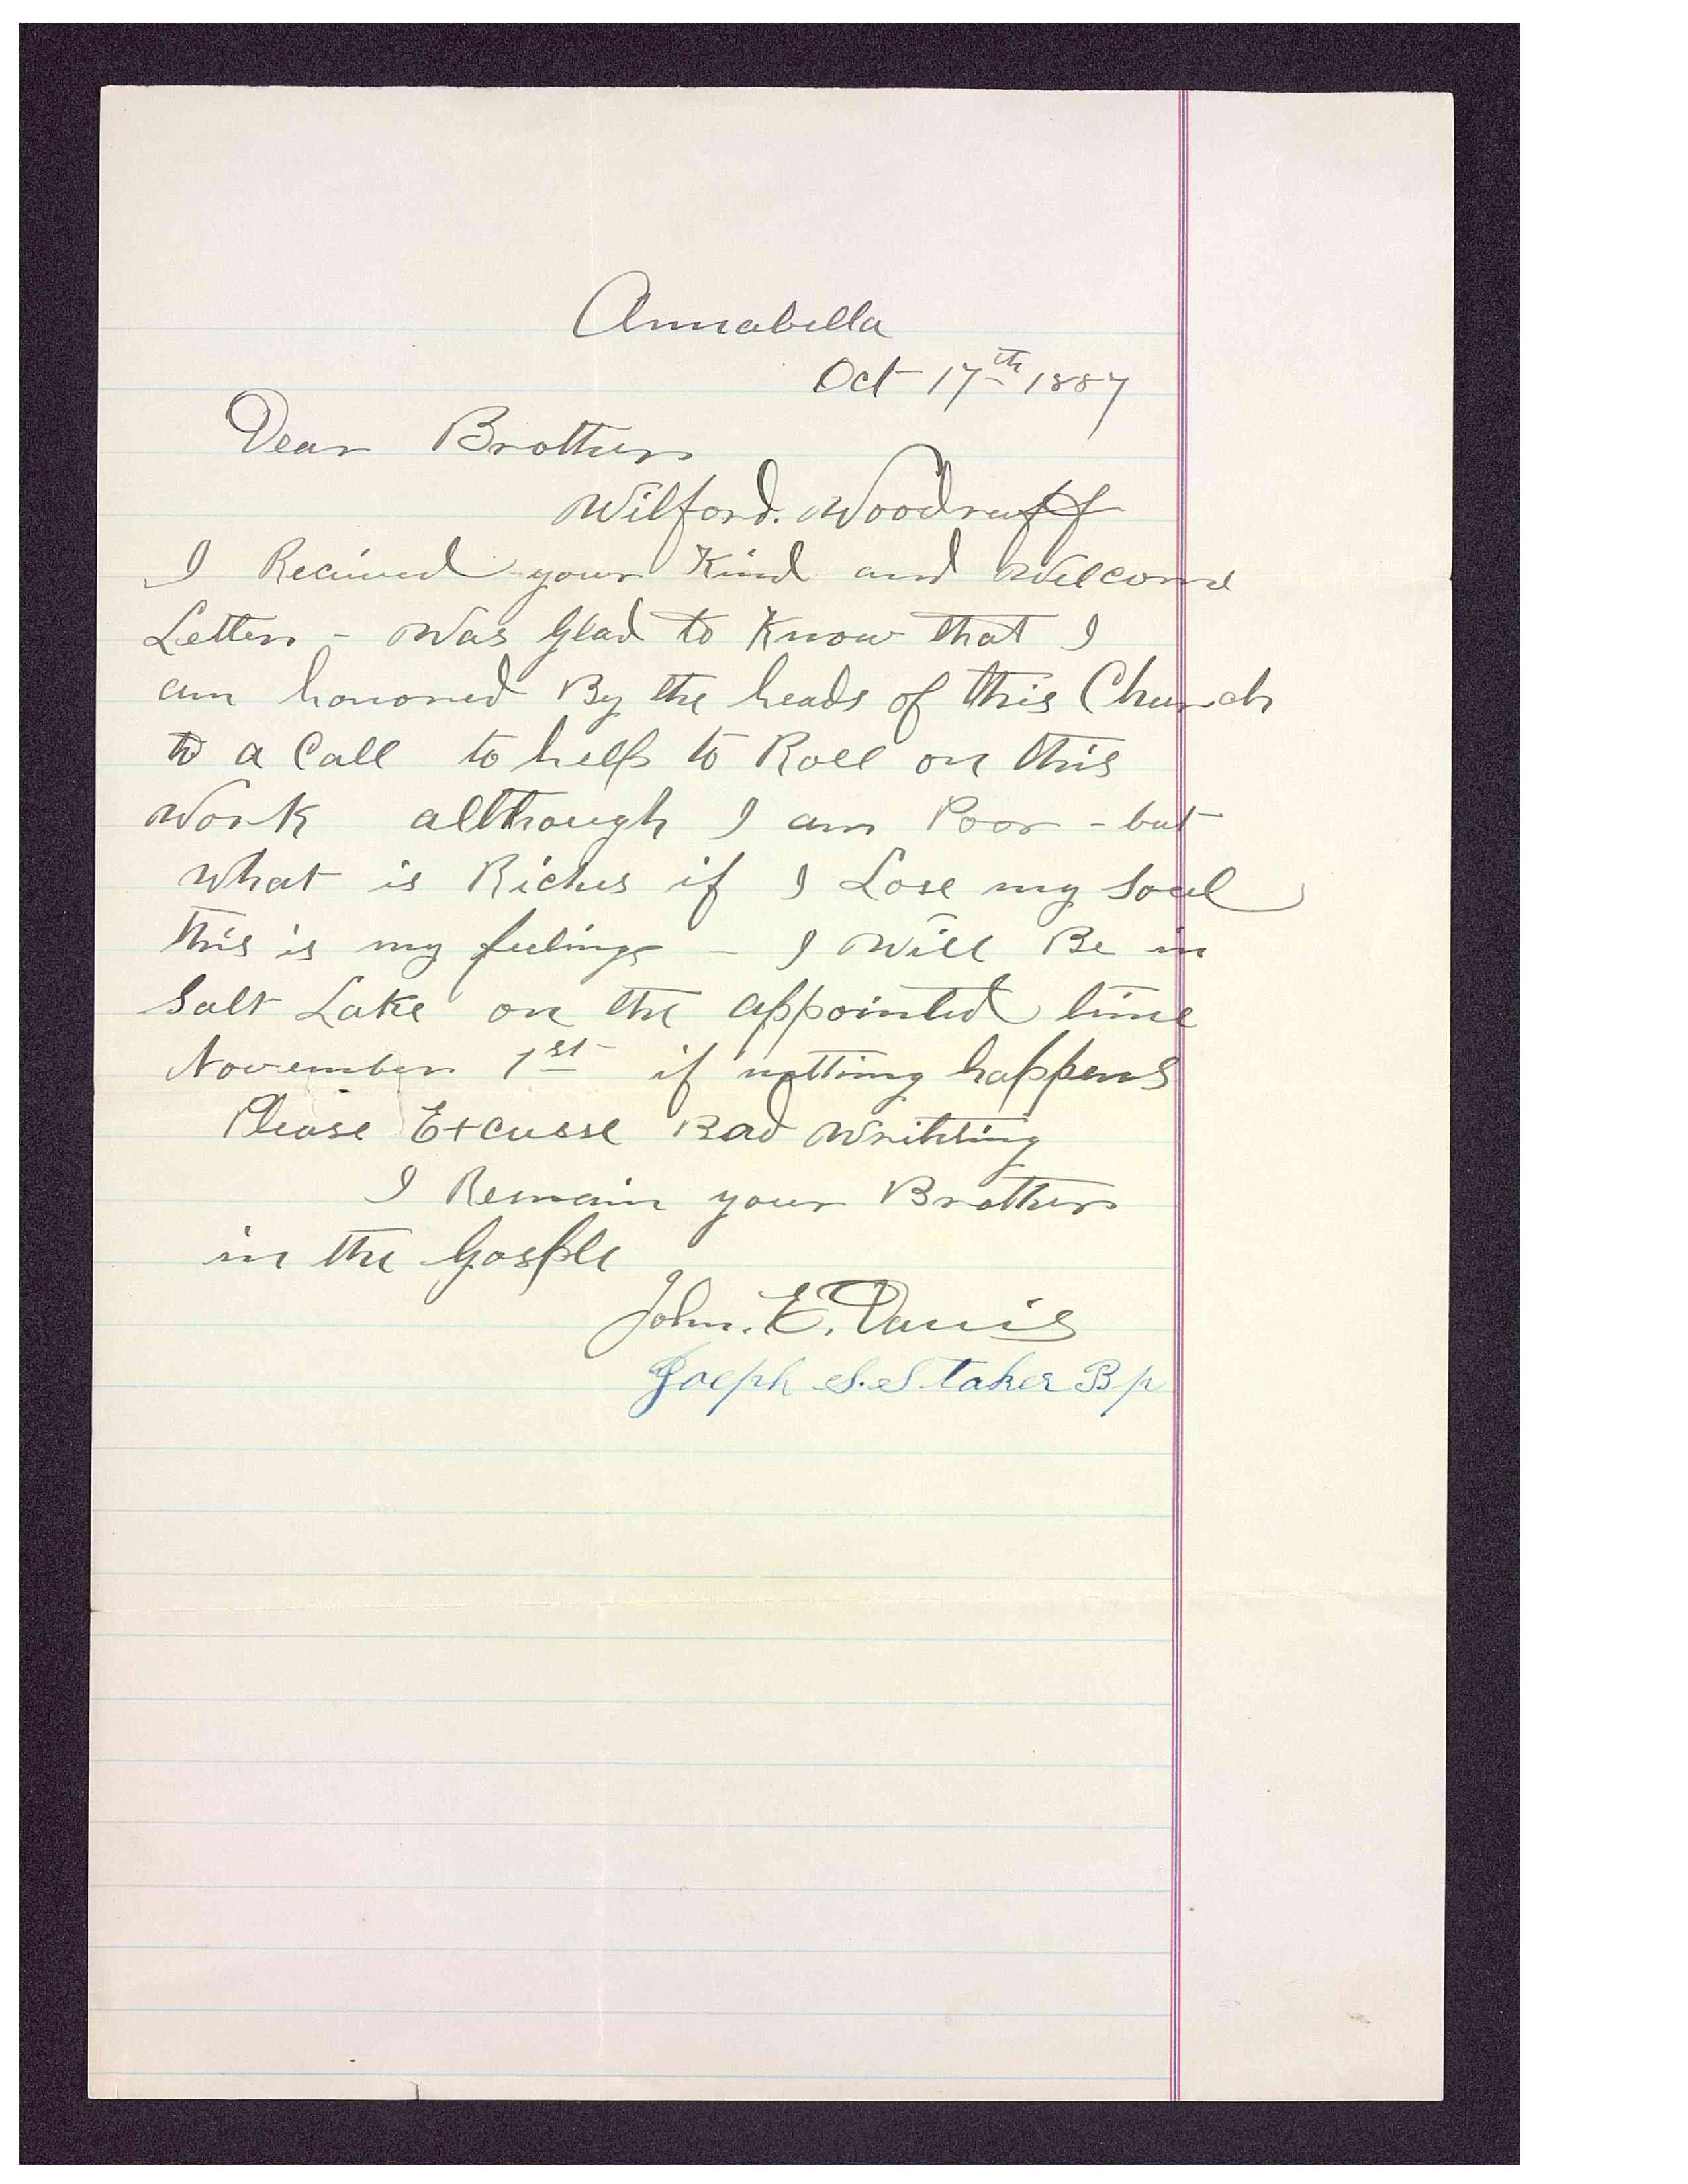 Annabella
Oct 17th 1887
Dear Brother
Wilford. Woodruff
I Recieved your Kind and Welcome
Letter - Was Glad to Know that I
am honored By the heads of this Church
to a Call to help to Roll on this
Work although I am Poor - but
What is Riches if I Lose my Soul
this is my feelings - I Will Be in
Salt Lake on the appointed time
November 1st if notting happens
Please Excusse Bad Writting
I Remain your Brother
in the Gosple
John. E. Davis
Joseph S. Staker Bp